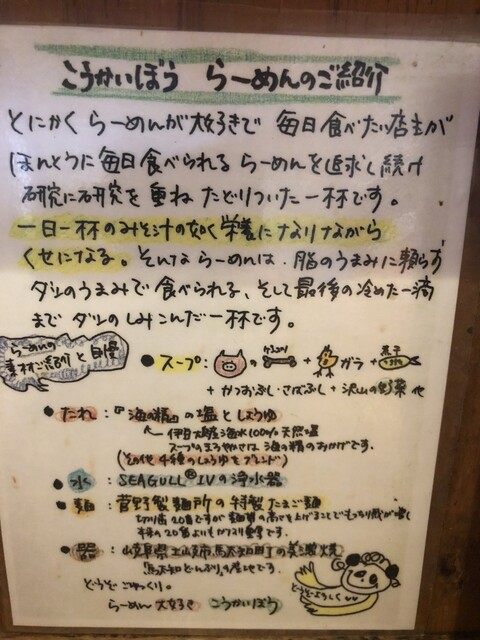 こうかいぼう らーめんのご紹介
とにかく らーめんが大好きで 毎日食べたい店主が
ほんとうに毎日食べられる らーめんを追求し続け
研究に研究を重ね たどりついた一杯です。
一日一杯のみそ汁の如く栄養になりながら
くせになる。そんならーめんは、脂のうまみに頼らず
ダシのうまみで食べられる、そして最後の冷めた一滴
まで ダシのしみこんだ一杯です。
らーめんの
素材ご紹介と自慢
●スープ: + ゲンコツ + ガラ + 煮干
+ かつおぶし・さばぶし + 沢山の野菜 他
●たれ:『海の精』の塩としょうゆ
伊豆大島海水100%天然塩
スープのまろやかさは海の精のおかげです。
(その他4種のしょうゆをブレンド)
●水:SEAGULL® IVの浄水器
●麺:菅野製麺所の特製たまご麺
切り歯20番ですが麺質の高さを上げることでもっちり感が増し
●器:岐阜県土岐市駄知町の美濃焼
「駄知どんぶり」の産地です。
どうぞごゆっくり。
らーめん 大好き こうかいぼう
どうぞよろしく